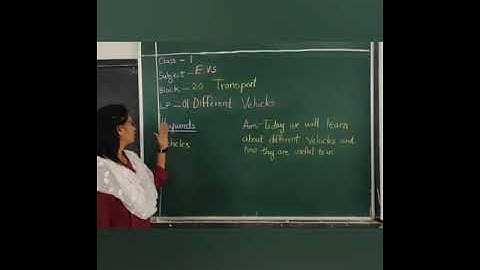 Class - 1
Subject - E.V.S
Block - 20 Transport
LP - 01 Different Vehicles
Keywords
Vehicles
Aim - Today we will learn
about different vehicles and
how they are useful to us